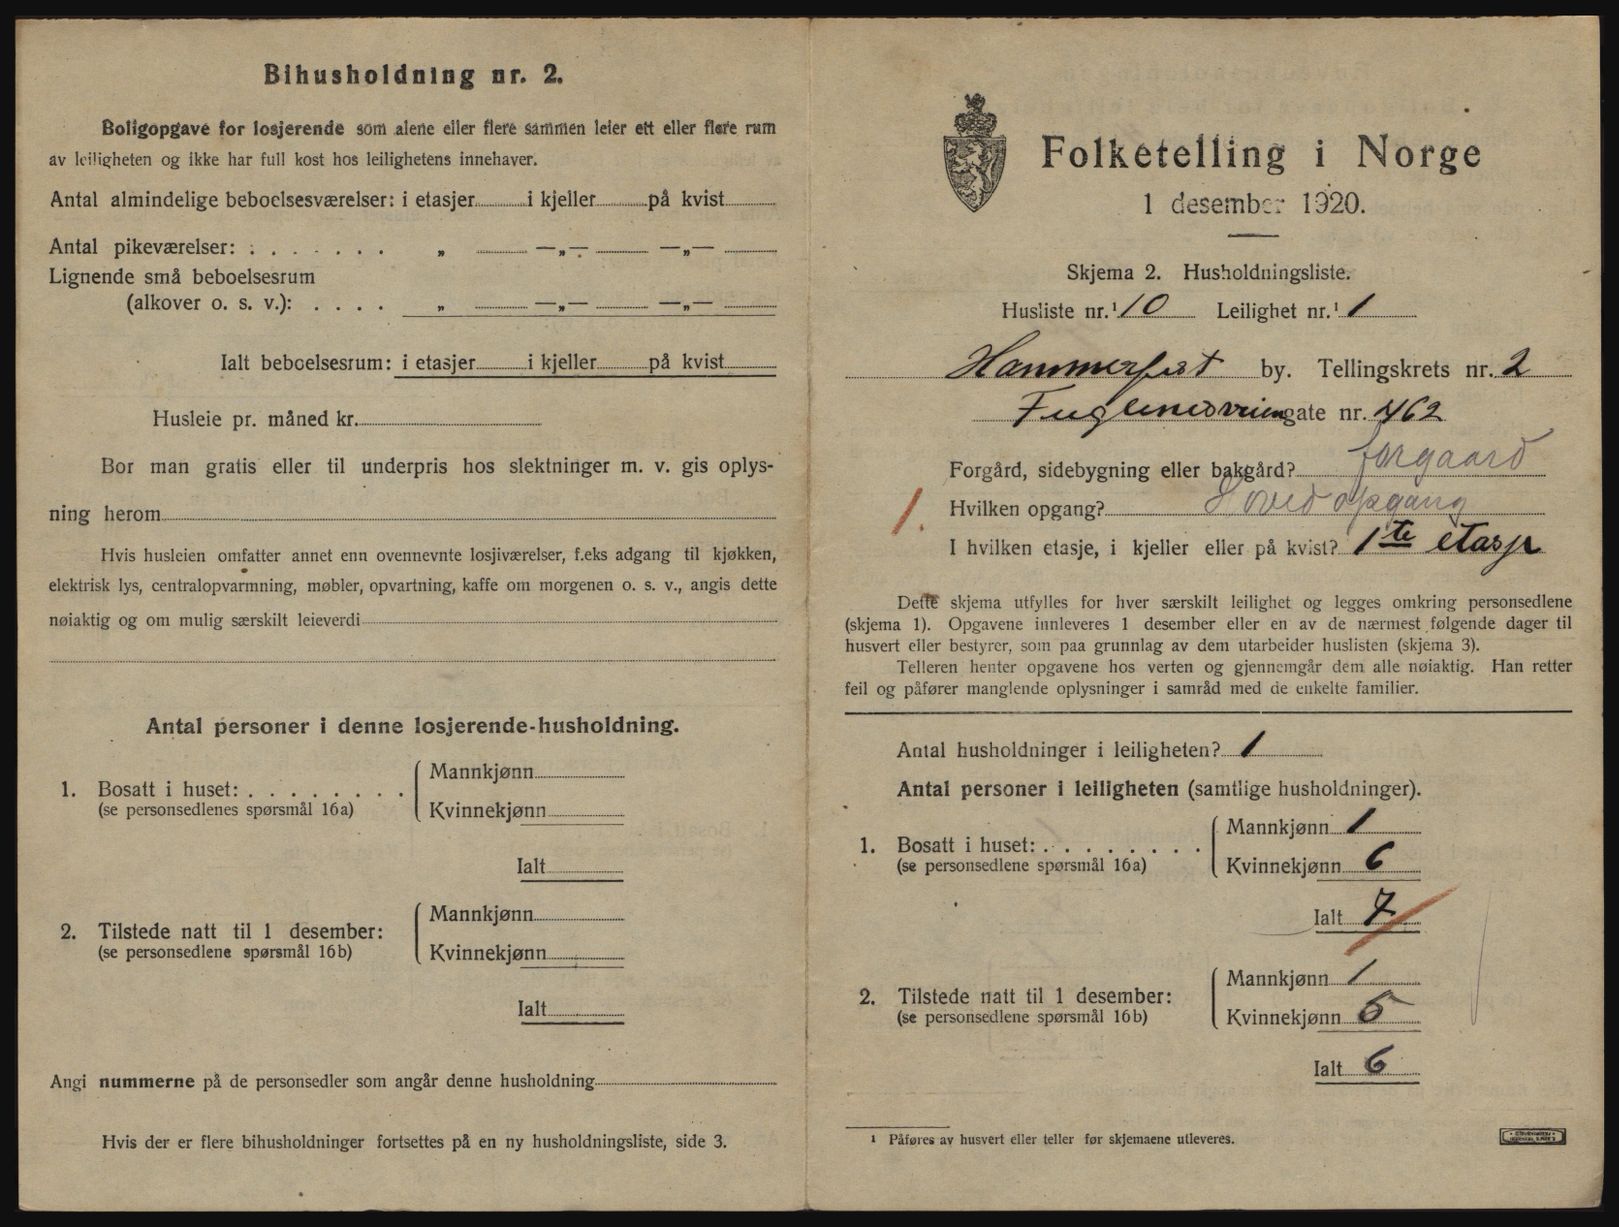 Bihusholdning nr. 2.
Boligopgave for losjerende som alene eller flere sammen leier ett eller flere rum
av leiligheten og ikke har full kost hos leilighetens innehaver.
Antal almindelige beboelsesværelser: i etasjer i kjeller på kvist
Antal pikeværelser: . . . . . . . „ —„— —„—
Lignende små beboelsesrum
(alkover o. s. v.): . . . . „ —„— —„—
Ialt beboelsesrum: i etasjer i kjeller på kvist
Husleie pr. måned kr.
Bor man gratis eller til underpris hos slektninger m. v. gis oplys-
ning herom
Hvis husleien omfatter annet enn ovennevnte losjiværelser, f.eks adgang til kjøkken,
elektrisk lys, centralopvarmning, møbler, opvartning, kaffe om morgenen o. s. v., angis dette
nøiaktig og om mulig særskilt leieverdi
Antal personer i denne losjerende-husholdning.
1. Bosatt i huset: . . . . . . . .
(se personsedlenes spørsmål 16a)
Mannkjønn
Kvinnekjønn
Ialt
2. Tilstede natt til 1 desember:
(se personsedlene spørsmål 16b)
Mannkjønn
Kvinnekjønn
Ialt
Angi nummerne på de personsedler som angår denne husholdning
Hvis der er flere bihusholdninger fortsettes på en ny husholdningsliste, side 3.
Folketelling i Norge
1 desember 1920.
Skjema 2. Husholdningsliste.
Husliste nr.¹ 10 Leilighet nr.¹ 1
Hammerfest by. Tellingskrets nr. 2
Fuglenesveien gate nr. 462
Forgård, sidebygning eller bakgård? forgaard
1. Hvilken opgang? Hovedopgang
I hvilken etasje, i kjeller eller på kvist? 1te etasje
Dette skjema utfylles for hver særskilt leilighet og legges omkring personsedlene
(skjema 1). Opgavene innleveres 1 desember eller en av de nærmest følgende dager til
husvert eller bestyrer, som paa grunnlag av dem utarbeider huslisten (skjema 3).
Telleren henter opgavene hos verten og gjennemgår dem alle nøiaktig. Han retter
feil og påfører manglende oplysninger i samråd med de enkelte familier.
Antal husholdninger i leiligheten? 1
Antal personer i leiligheten (samtlige husholdninger).
1. Bosatt i huset: . . . . . . . .
(se personsedlene spørsmål 16a)
Mannkjønn 1
Kvinnekjønn 6
Ialt 7
2. Tilstede natt til 1 desember:
(se personsedlene spørsmål 16b)
Mannkjønn 1
Kvinnekjønn 5
Ialt 6
¹ Påføres av husvert eller teller før skjemaene utleveres.